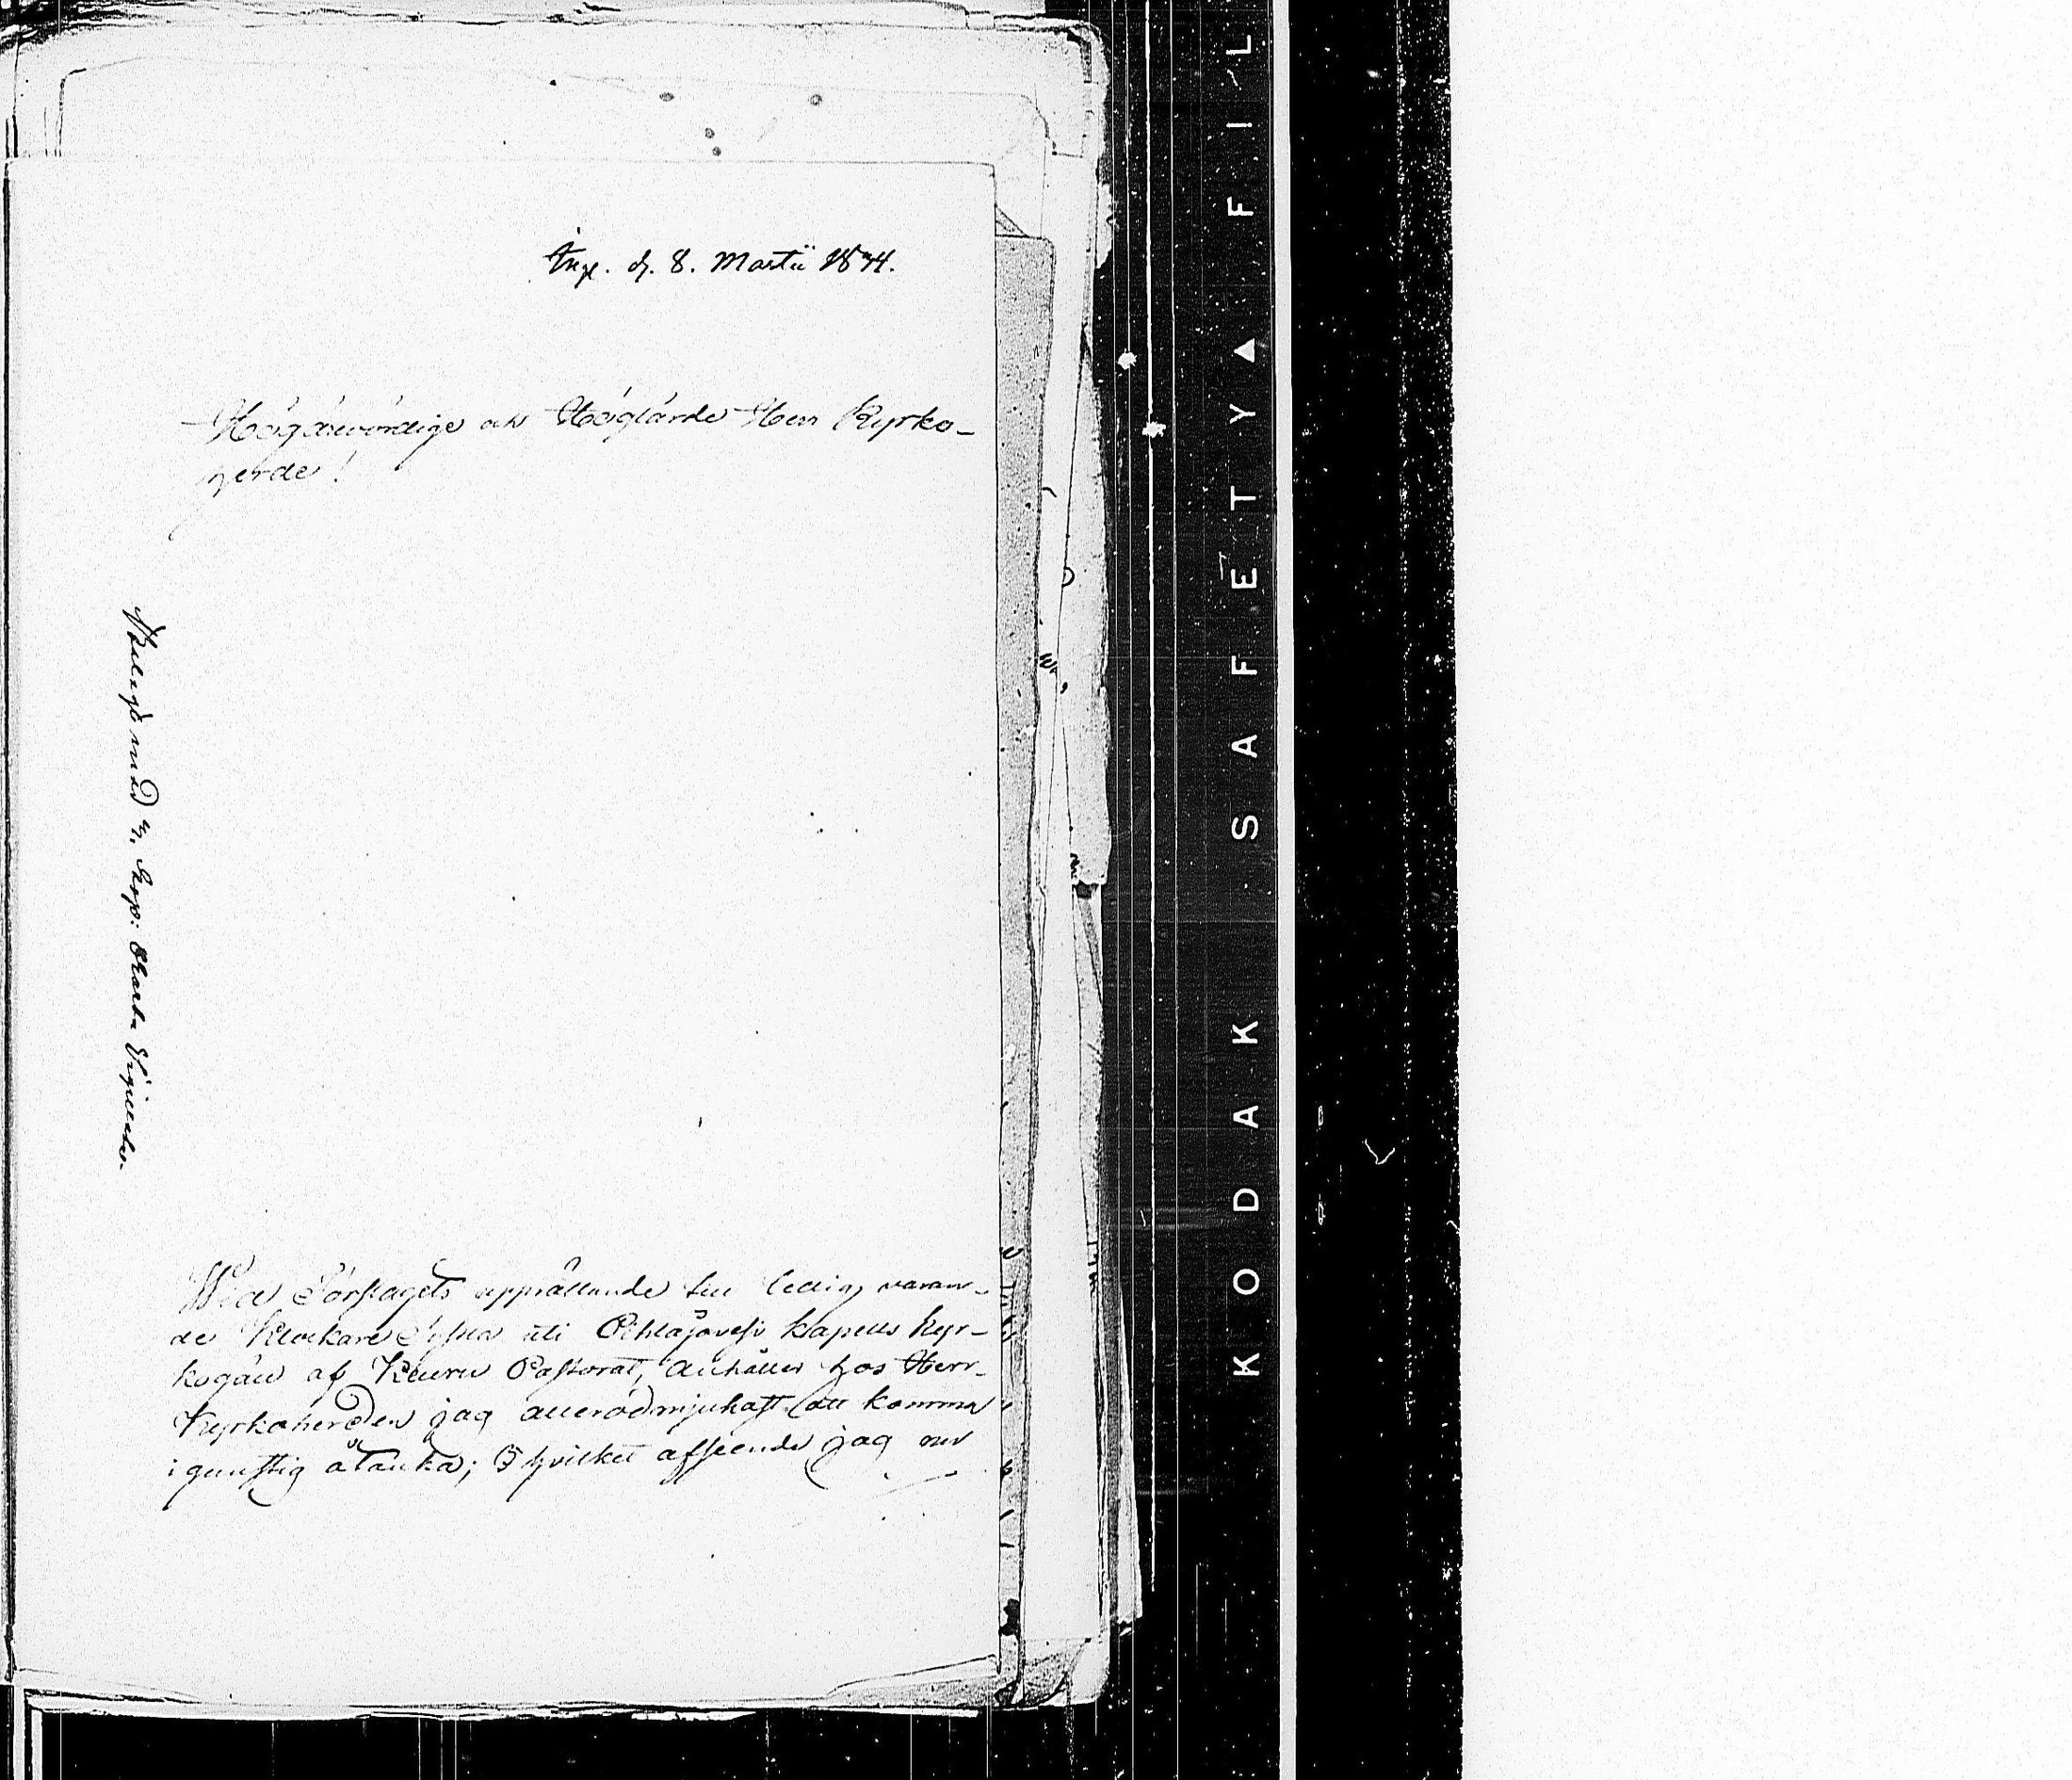 Ing. d. 8. Martii 1874.
Högärewördige och Höglärde Herr Kyrko-
herde!
Belagd med 4. kop: Charta Sigillata.
Wid Förslagets upprättande till ledig waran-
de Klockare Syssla uti Pihlajavesi Kapells Kyr-
kogäll af Keuru Pastorat, anhåller hos Herr
Kyrkoherden jag allerödmjukast att komma
i gunstig åtanka; I hvilket afseende jag
KODAK SAFETY ▲ FIL